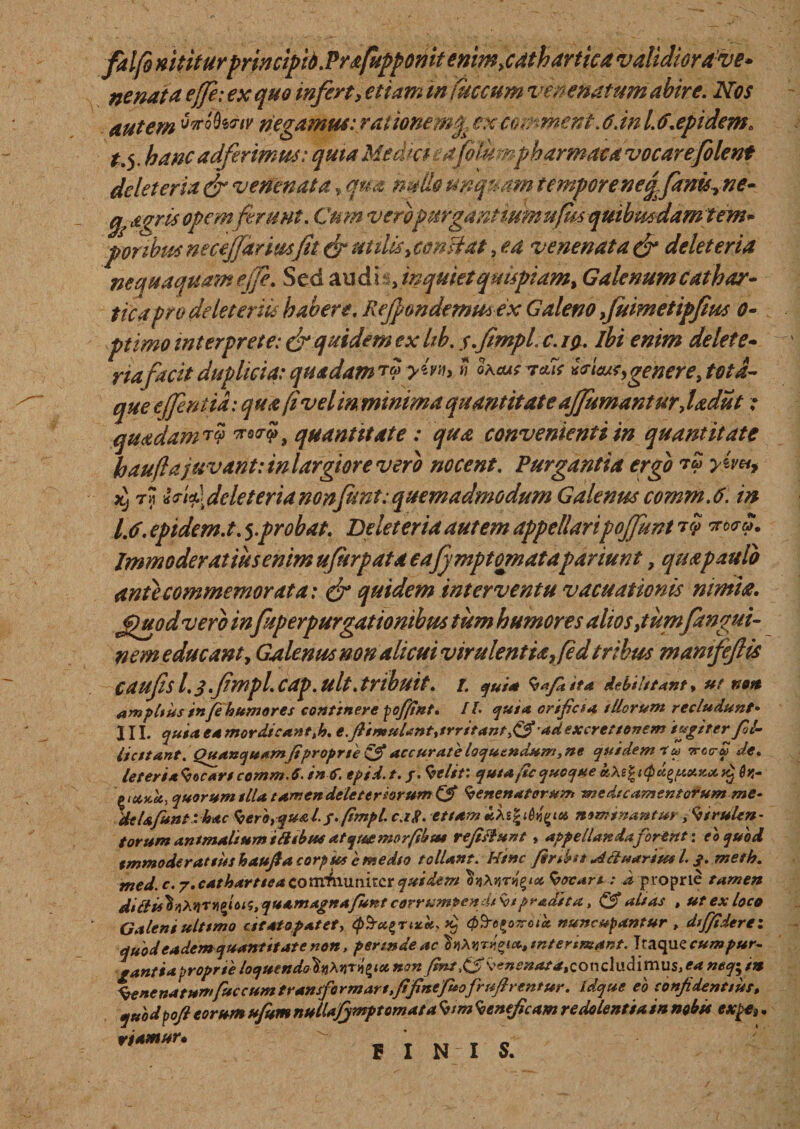 falſo nititur principio. Præſupponit enim, cathartica validiora ve-
nenata eſſe: ex quo infert, etiam in ſuccum venenatum abire. Nos
autem ὑπόθεσιν negamus: rationemq́; ex comment. 6. in l. 6. epidem.
t. 5. hanc adferimus: quia Medici ea ſolum pharmaca vocare ſolent
deleteria & venenata, quæ nullo unquam tempore neq; ſanis, ne-
q; ægris opem ferunt. Cum vero purgantium uſus quibusdam tem-
poribus neceſſarius ſit & utilis, conſtat, ea venenata & deleteria
nequaquam eſſe. Sed audis, inquiet quispiam, Galenum cathar-
tica pro deleteriis habere. Reſpondemus ex Galeno, ſuimetipſius o-
ptimo interprete: & quidem ex lib. 5. ſimpl. c. 19. Ibi enim delete-
ria facit duplicia: quædam τῷ γένει, ἢ ὅλαις ταῖς οὐσίαις, genere, totá-
que eſſentiâ: quæ ſi vel in minima quantitate aſſumantur, lædūt;
quædam τῷ ποσῷ, quantitate: quæ convenienti in quantitate
hauſta juvant: in largiore vero nocent. Purgantia ergo τῷ γένει,
ϗ τῇ οὐσίᾳ deleteria non ſunt: quemadmodum Galenus comm. 6. in
l. 6. epidem. t. 5. probat. Deleteria autem appellari poſſunt τῷ ποσῷ.
Immoderatiùs enim uſurpata ea ſymptomata pariunt, quæ paulò
antè commemorata: & quidem interventu vacuationis nimiæ.
Quod verò in ſuperpurgationibus tùm humores alios, tùm ſangui-
nem educant, Galenus non alicui virulentiæ, ſed tribus manifeſtis
cauſis l. 3. ſimpl. cap. ult. tribuit. I. quia vaſa ita debilitant, ut non
ampliùs in ſe humores continere poſſint. II. quia orificia illorum recludunt.
III. quia ea mordicant, h. e. ſtimulant, irritant, & ad excretionem jugiter ſol-
licitant. Quanquam ſi propriè & accuratè loquendum, ne quidem τῷ ποσῷ de-
leteria vocari comm. 6. in 6. epid. t. 5. velit: quia ſic quoque ἀλεξιφάρμακα ϗ θη-
ριακὰ, quorum illa tamen deleteriorum & venenatorum medicamentorum me-
dela ſunt: hac verò, quæ l. 5. ſimpl. c. 18. etiam ἀλεξιθήρια nominantur, virulen-
torum animalium ictibus atque morſibus reſiſtunt, appellanda forent: eò quòd
immoderatiùs hauſta corpus è medio tollant. Hinc ſcribit Actuarius l. 3. meth.
med. c. 7. cathartica communiter quidem δηλητήρια vocari: à propriè tamen
dictis δηλητηρίοις, quæ magna ſunt corrumpendi vi prædita, & alias, ut ex loco
Galeni ultimo citato patet, φθαρτικὰ, ϗ φθοροποιὰ nuncupantur, diſſidere:
quòd eadem quantitate non, perinde ac δηλητήρια, interimant. Itaque cum pur-
gantia propriè loquendo δηλητήρια non ſint, & venenata, concludimus, ea neq; in
venenatum ſuccum transformari, ſi ſine ſuo fruſtrentur. Idque eò confidentiùs,
quòd poſt eorum uſum nulla ſymptomata vim veneficam redolentia in nobis expe-
riamur.
FINIS.